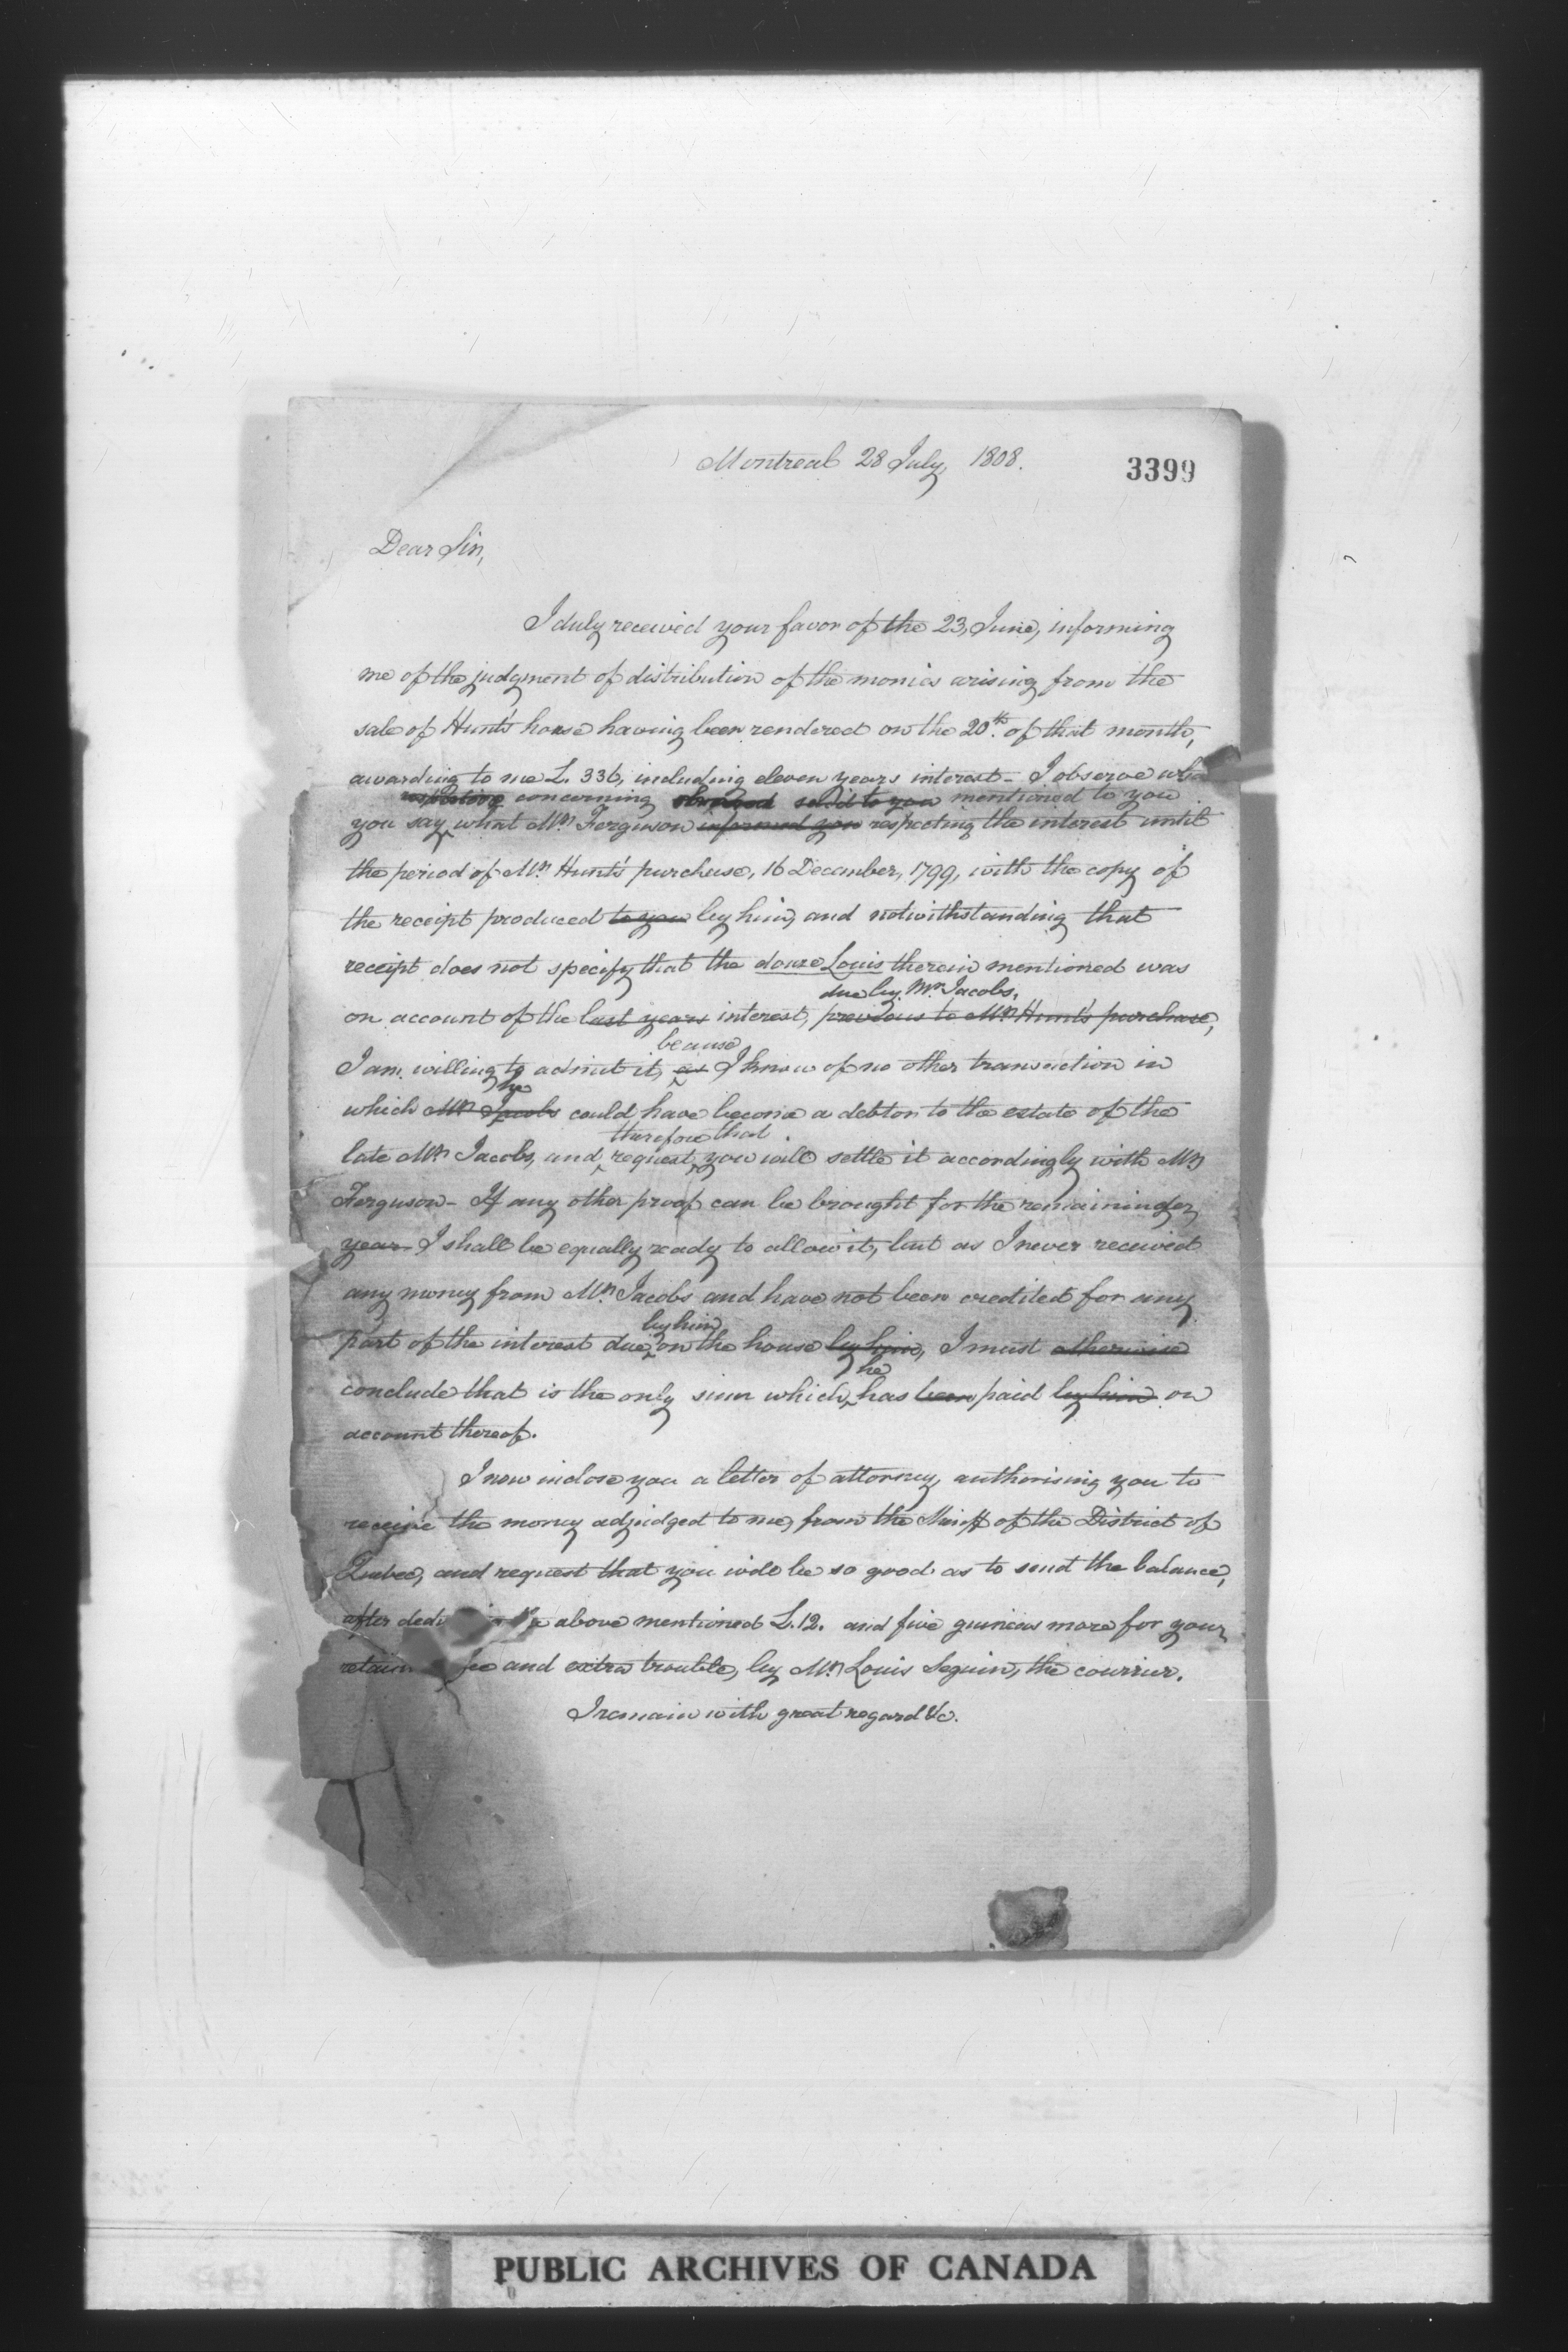 Montreal 28 July, 1808.
3399
Dear Sir,
I duly received your favor of the 23, June, informing
me of the judgment of distribution of the monies arising from the
sale of Hunt's house having been rendered on the 20th. of that month,
awarding to me L. 336, including eleven years interest - I observe what
concerning said to you mentioned to you
you say what Mr. Ferguson informed you respecting the interest until
the period of Mr. Hunt's purchase, 16 December, 1799, with the copy of
the receipt produced to you by him, and notwithstanding that
receipt does not specify that the douze Louis therein mentioned was
due by Mr. Jacobs,
on account of the last years interest, previous to Mr. Hunt's purchase,
because
I am willing to admit it, as I know of no other transaction in
he
which Mr. Jacobs could have become a debtor to the estate of the
therefore that
late Mr. Jacobs, and request you will settle it accordingly with Mr.
Ferguson - If any other proof can be brought for the remaininder
year I shall be equally ready to allow it, but as I never received
any money from Mr. Jacobs and have not been credited for any
by him
part of the interest due on the house by him, I must otherwise
he
conclude that is the only sum which has been paid by him on
account thereof.
I now inclose you a letter of attorney, authorising you to
receive the money adjudged to me, from the Sheriff of the District of
Quebec, and request that you will be so good as to send the balance,
after above mentioned L. 12. and five guineas more for your
fee and extra trouble, by Mr. Louis Seguin, the courrier.
I remain with great regard &c.
PUBLIC ARCHIVES OF CANADA